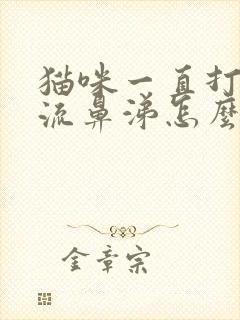 猫咪一直打
流鼻涕怎麽
金章宗